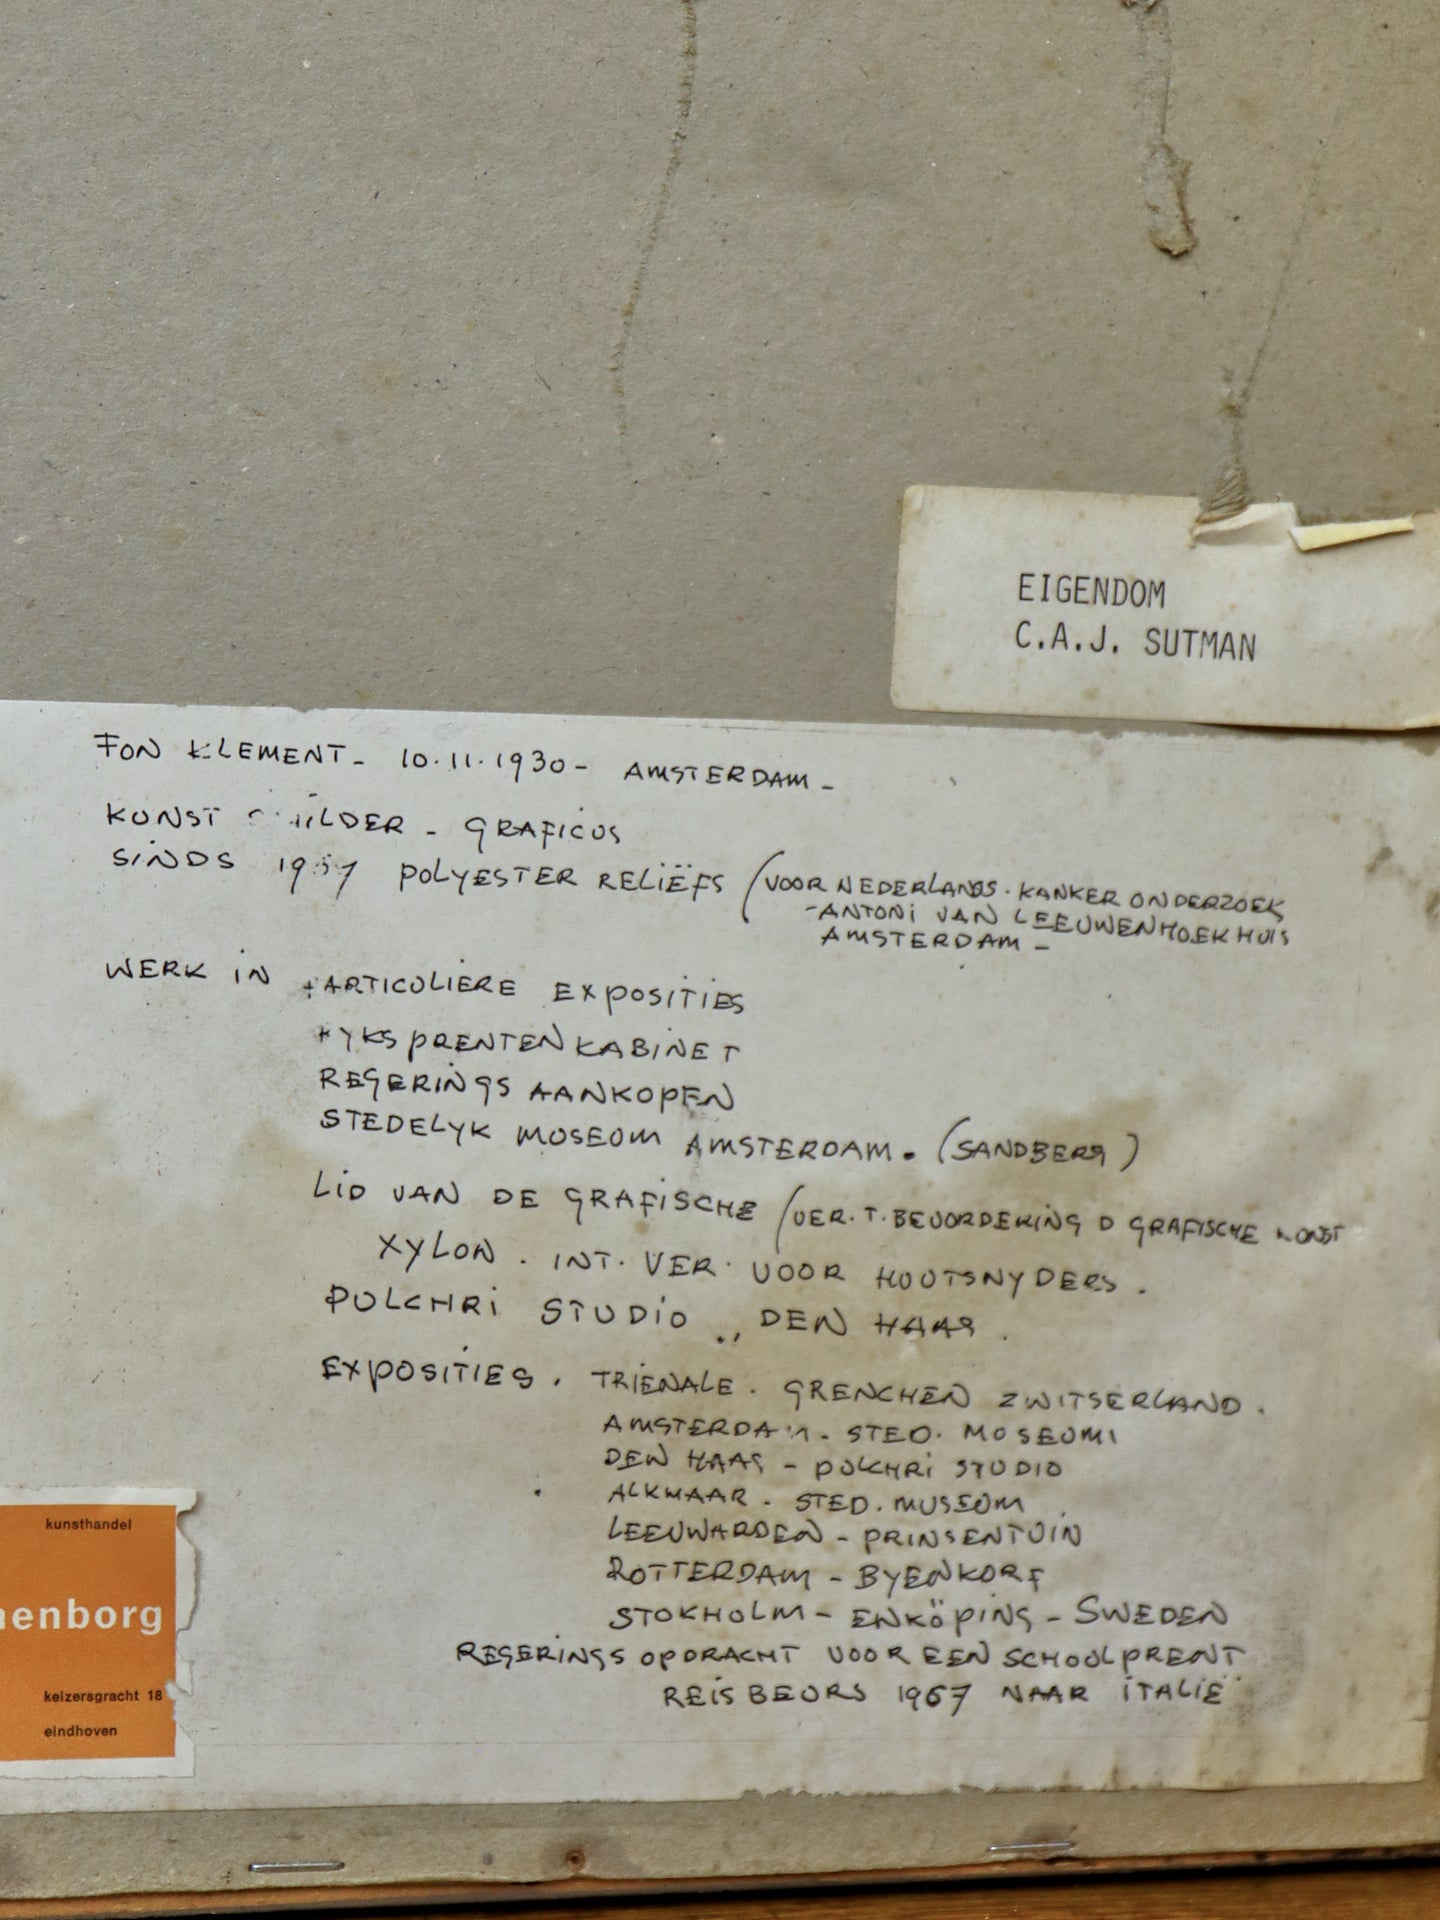 EIGENDOM
C.A.J. SUTMAN
FON KLEMENT - 10.11.1930 - AMSTERDAM -
KUNST - GRAFICUS
SINDS POLYESTER RELIËFS (VOOR NEDERLANDS. KANKER ONDERZOEK
-ANTONI VAN LEEUWENHOEK HUIS
AMSTERDAM -
WERK IN PARTICULIERE EXPOSITIES
RYKSPRENTENKABINET
REGERINGS AANKOPEN
STEDELYK MUSEUM AMSTERDAM. (SANDBERG)
LID VAN DE GRAFISCHE (VER. T. BEVORDERING D GRAFISCHE KONST
XYLON. INT. VER. VOOR HOUTSNYDERS.
PULCHRI STUDIO ., DEN HAAG.
EXPOSITIES. TRIENALE. GRENCHEN ZWITSERLAND.
AMSTERDAM. STED. MUSEUM
DEN HAAG - PULCHRI STUDIO
ALKMAAR. STED. MUSEUM
LEEUWARDEN - PRINSENTUIN
ROTTERDAM - BYENKORF
STOKHOLM - ENKÖPING - SWEDEN
REGERINGS OPDRACHT VOOR EEN SCHOOLPRENT
REISBEURS 1967 NAAR ITALIË
kunsthandel
nenborg
keizersgracht 18
eindhoven